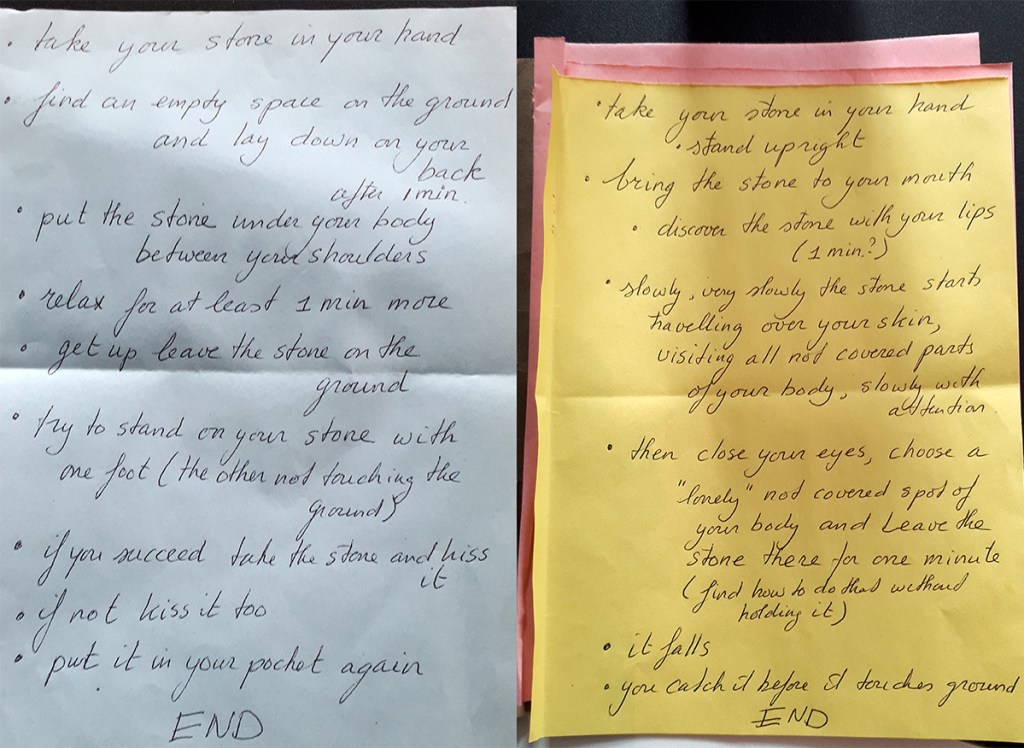 • take your stone in your hand
• find an empty space on the ground
and lay down on your
back
after 1 min.
• put the stone under your body
between your shoulders
• relax for at least 1 min more
• get up leave the stone on the
ground
• try to stand on your stone with
one foot (the other not touching the
ground)
• if you succeed take the stone and kiss
it
• if not kiss it too
• put it in your pocket again
END
• take your stone in your hand
• stand upright
• bring the stone to your mouth
• discover the stone with your lips
(1 min?)
• slowly, very slowly the stone starts
travelling over your skin,
visiting all not covered parts
of your body, slowly with
attention.
• then close your eyes, choose a
"lonely" not covered spot of
your body and Leave the
stone there for one minute
(find how to do that without
holding it)
• it falls
• you catch it before it touches ground
END